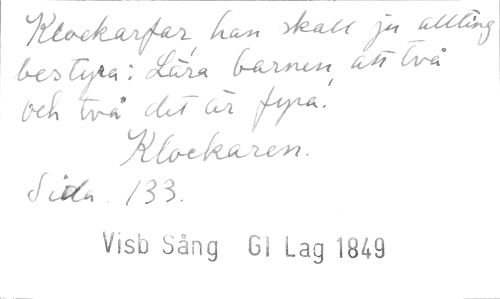 Klockarfar, han skall ju allting
bestyra: Lära barnen, att två
och två det är fyra.
Klockaren.
Sida. 133.
Visb Sång Gl Lag 1849